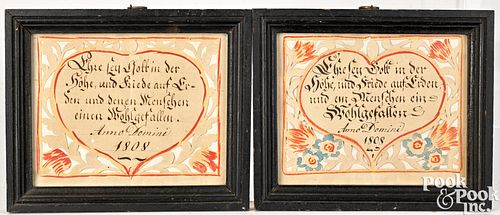 Ehre sey Gott in der
Höhe, und Friede auf Er-
den und denen Menschen
einen Wohlgefallen.
Anno Domini
1808
Ehre sey Gott in der
Höhe, und Friede auf Erden,
und en Menschen ein
Wohlgefallen
Anno Domini
1808
POOK
& POOK
INC.